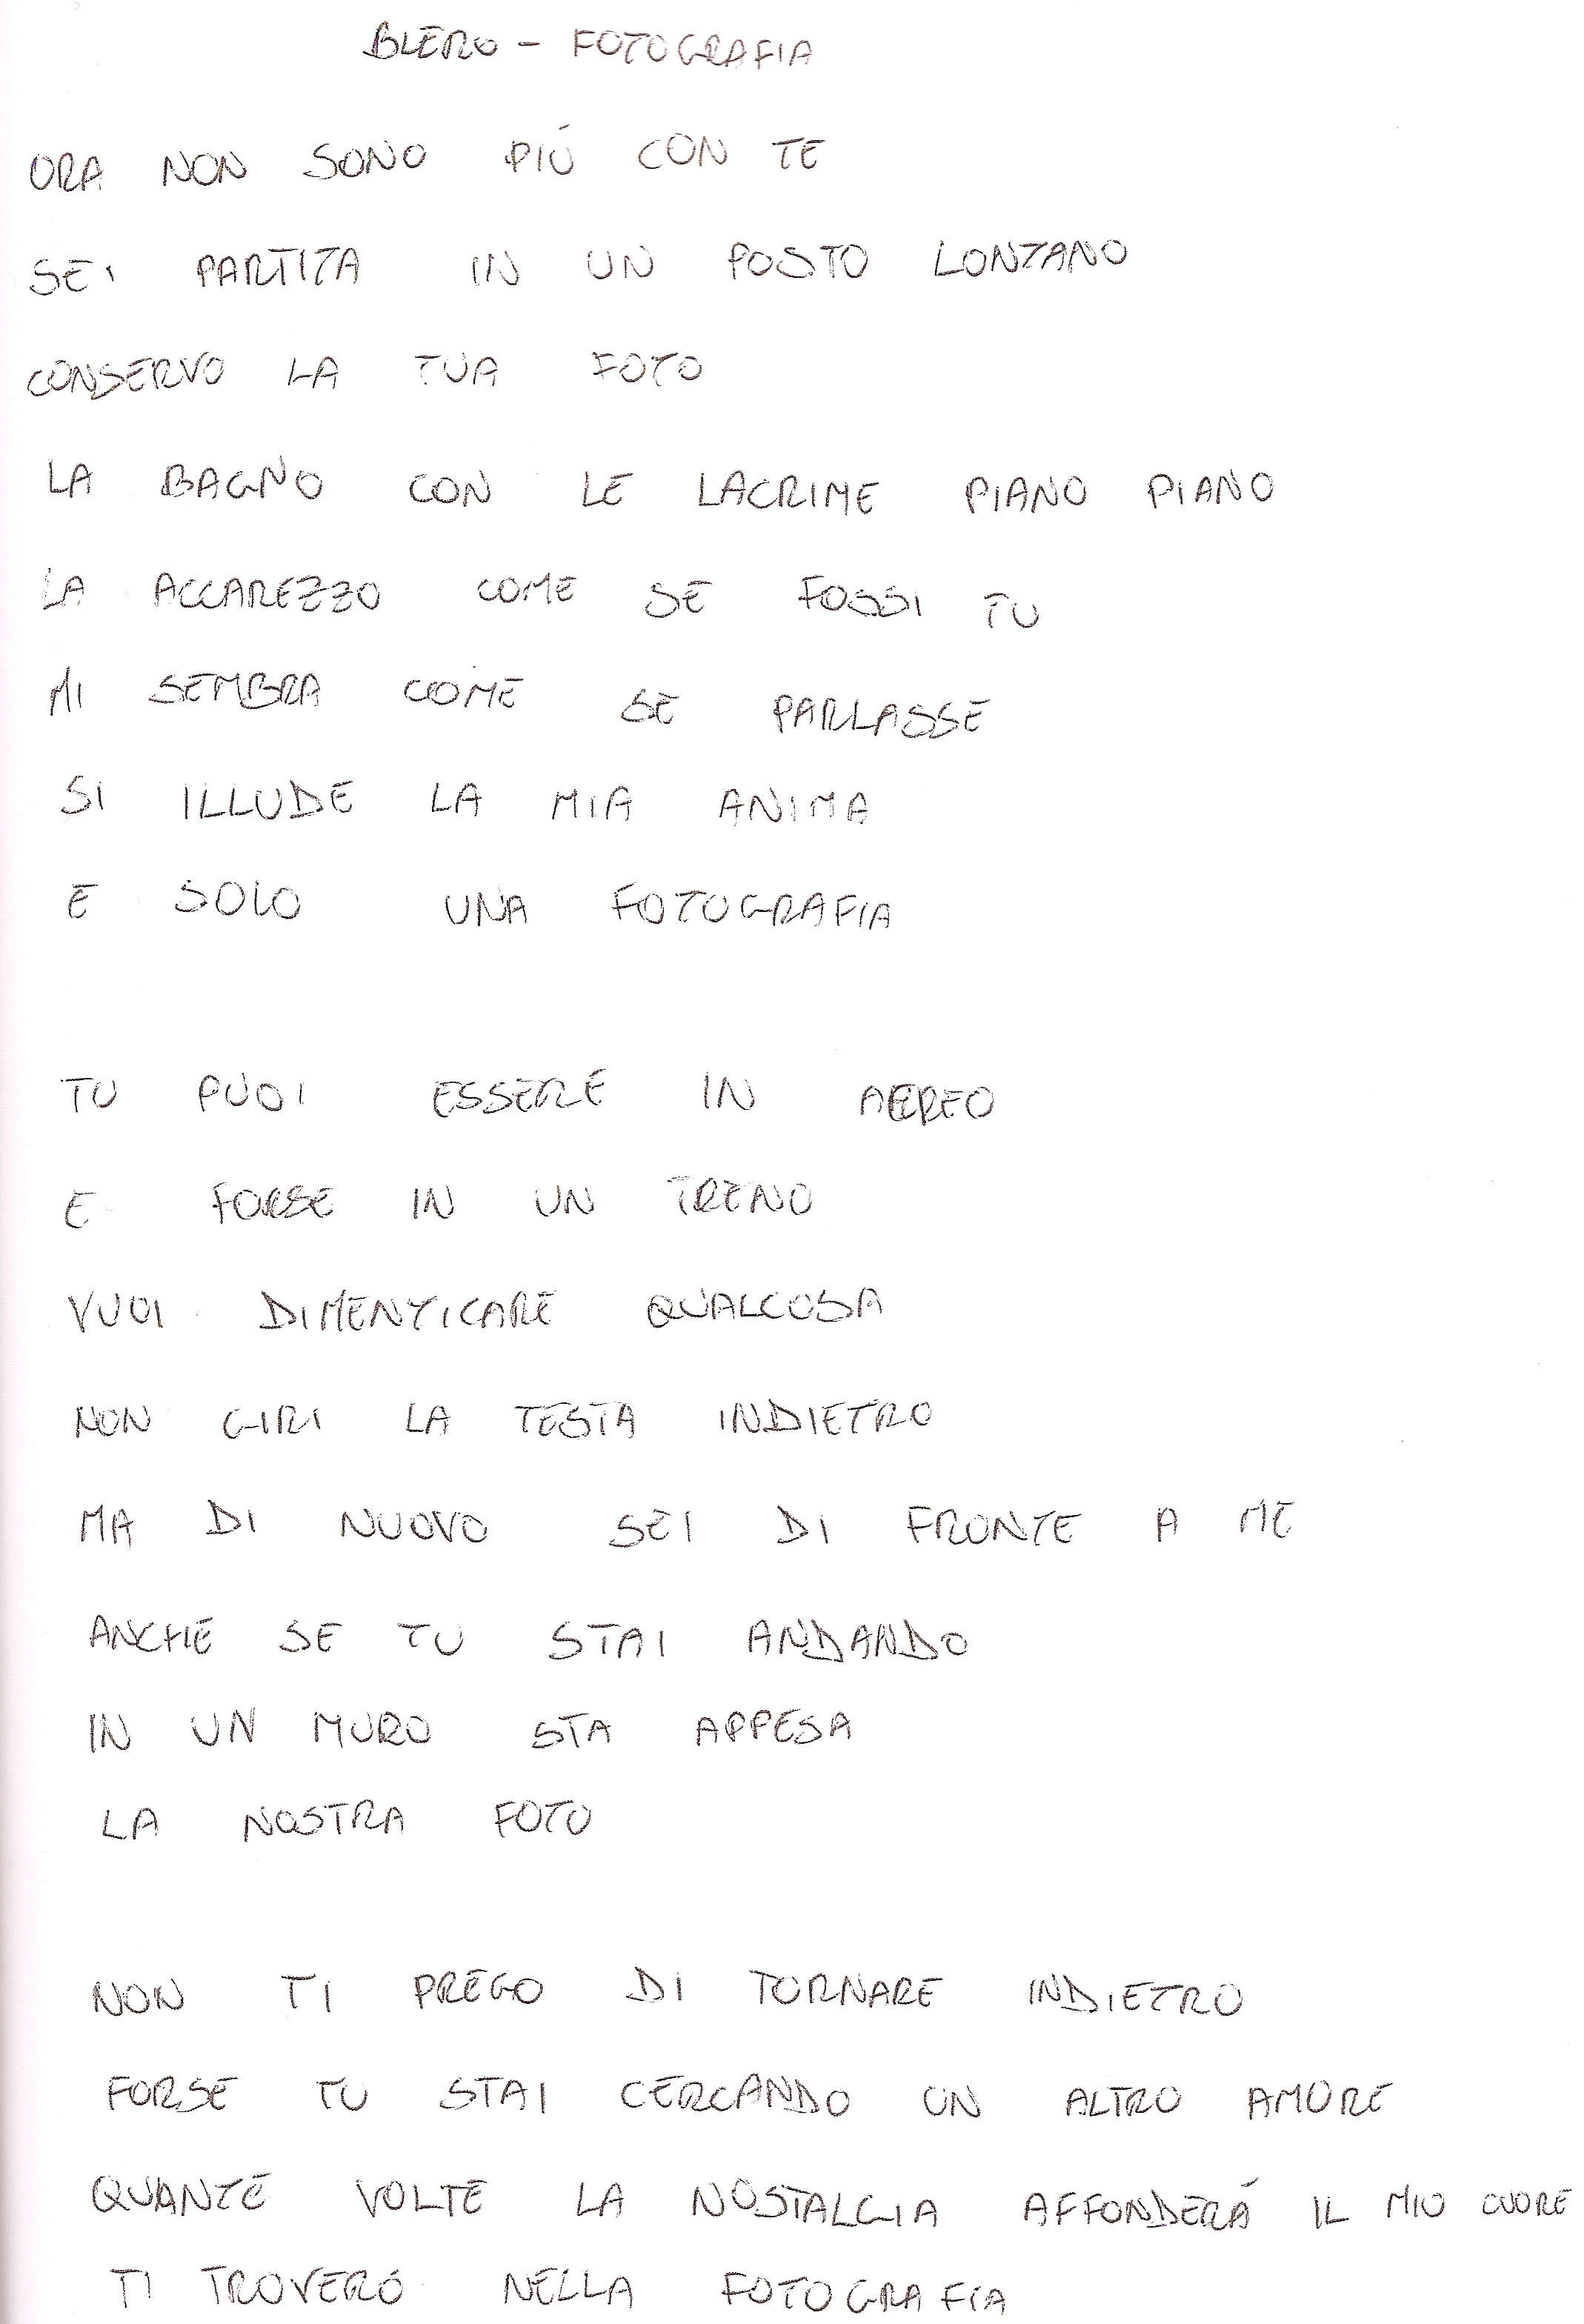 BLERO - FOTOGRAFIA
ORA NON SONO PIÚ CON TE
SEI PARTITA IN UN POSTO LONTANO
CONSERVO LA TUA FOTO
LA BAGNO CON LE LACRIME PIANO PIANO
LA ACCAREZZO COME SE FOSSI TU
MI SEMBRA COME SE PARLASSE
SI ILLUDE LA MIA ANIMA
E SOLO UNA FOTOGRAFIA
TU PUOI ESSERE IN AEREO
E FORSE IN UN TRENO
VUOI DIMENTICARE QUALCOSA
NON GIRI LA TESTA INDIETRO
MA DI NUOVO SEI DI FRONTE A ME
ANCHE SE TU STAI ANDANDO
IN UN MURO STA APPESA
LA NOSTRA FOTO
NON TI PREGO DI TORNARE INDIETRO
FORSE TU STAI CERCANDO UN ALTRO AMORE
QUANTE VOLTE LA NOSTALGIA AFFONDERÁ IL MIO CUORE
TI TROVERÓ NELLA FOTOGRAFIA